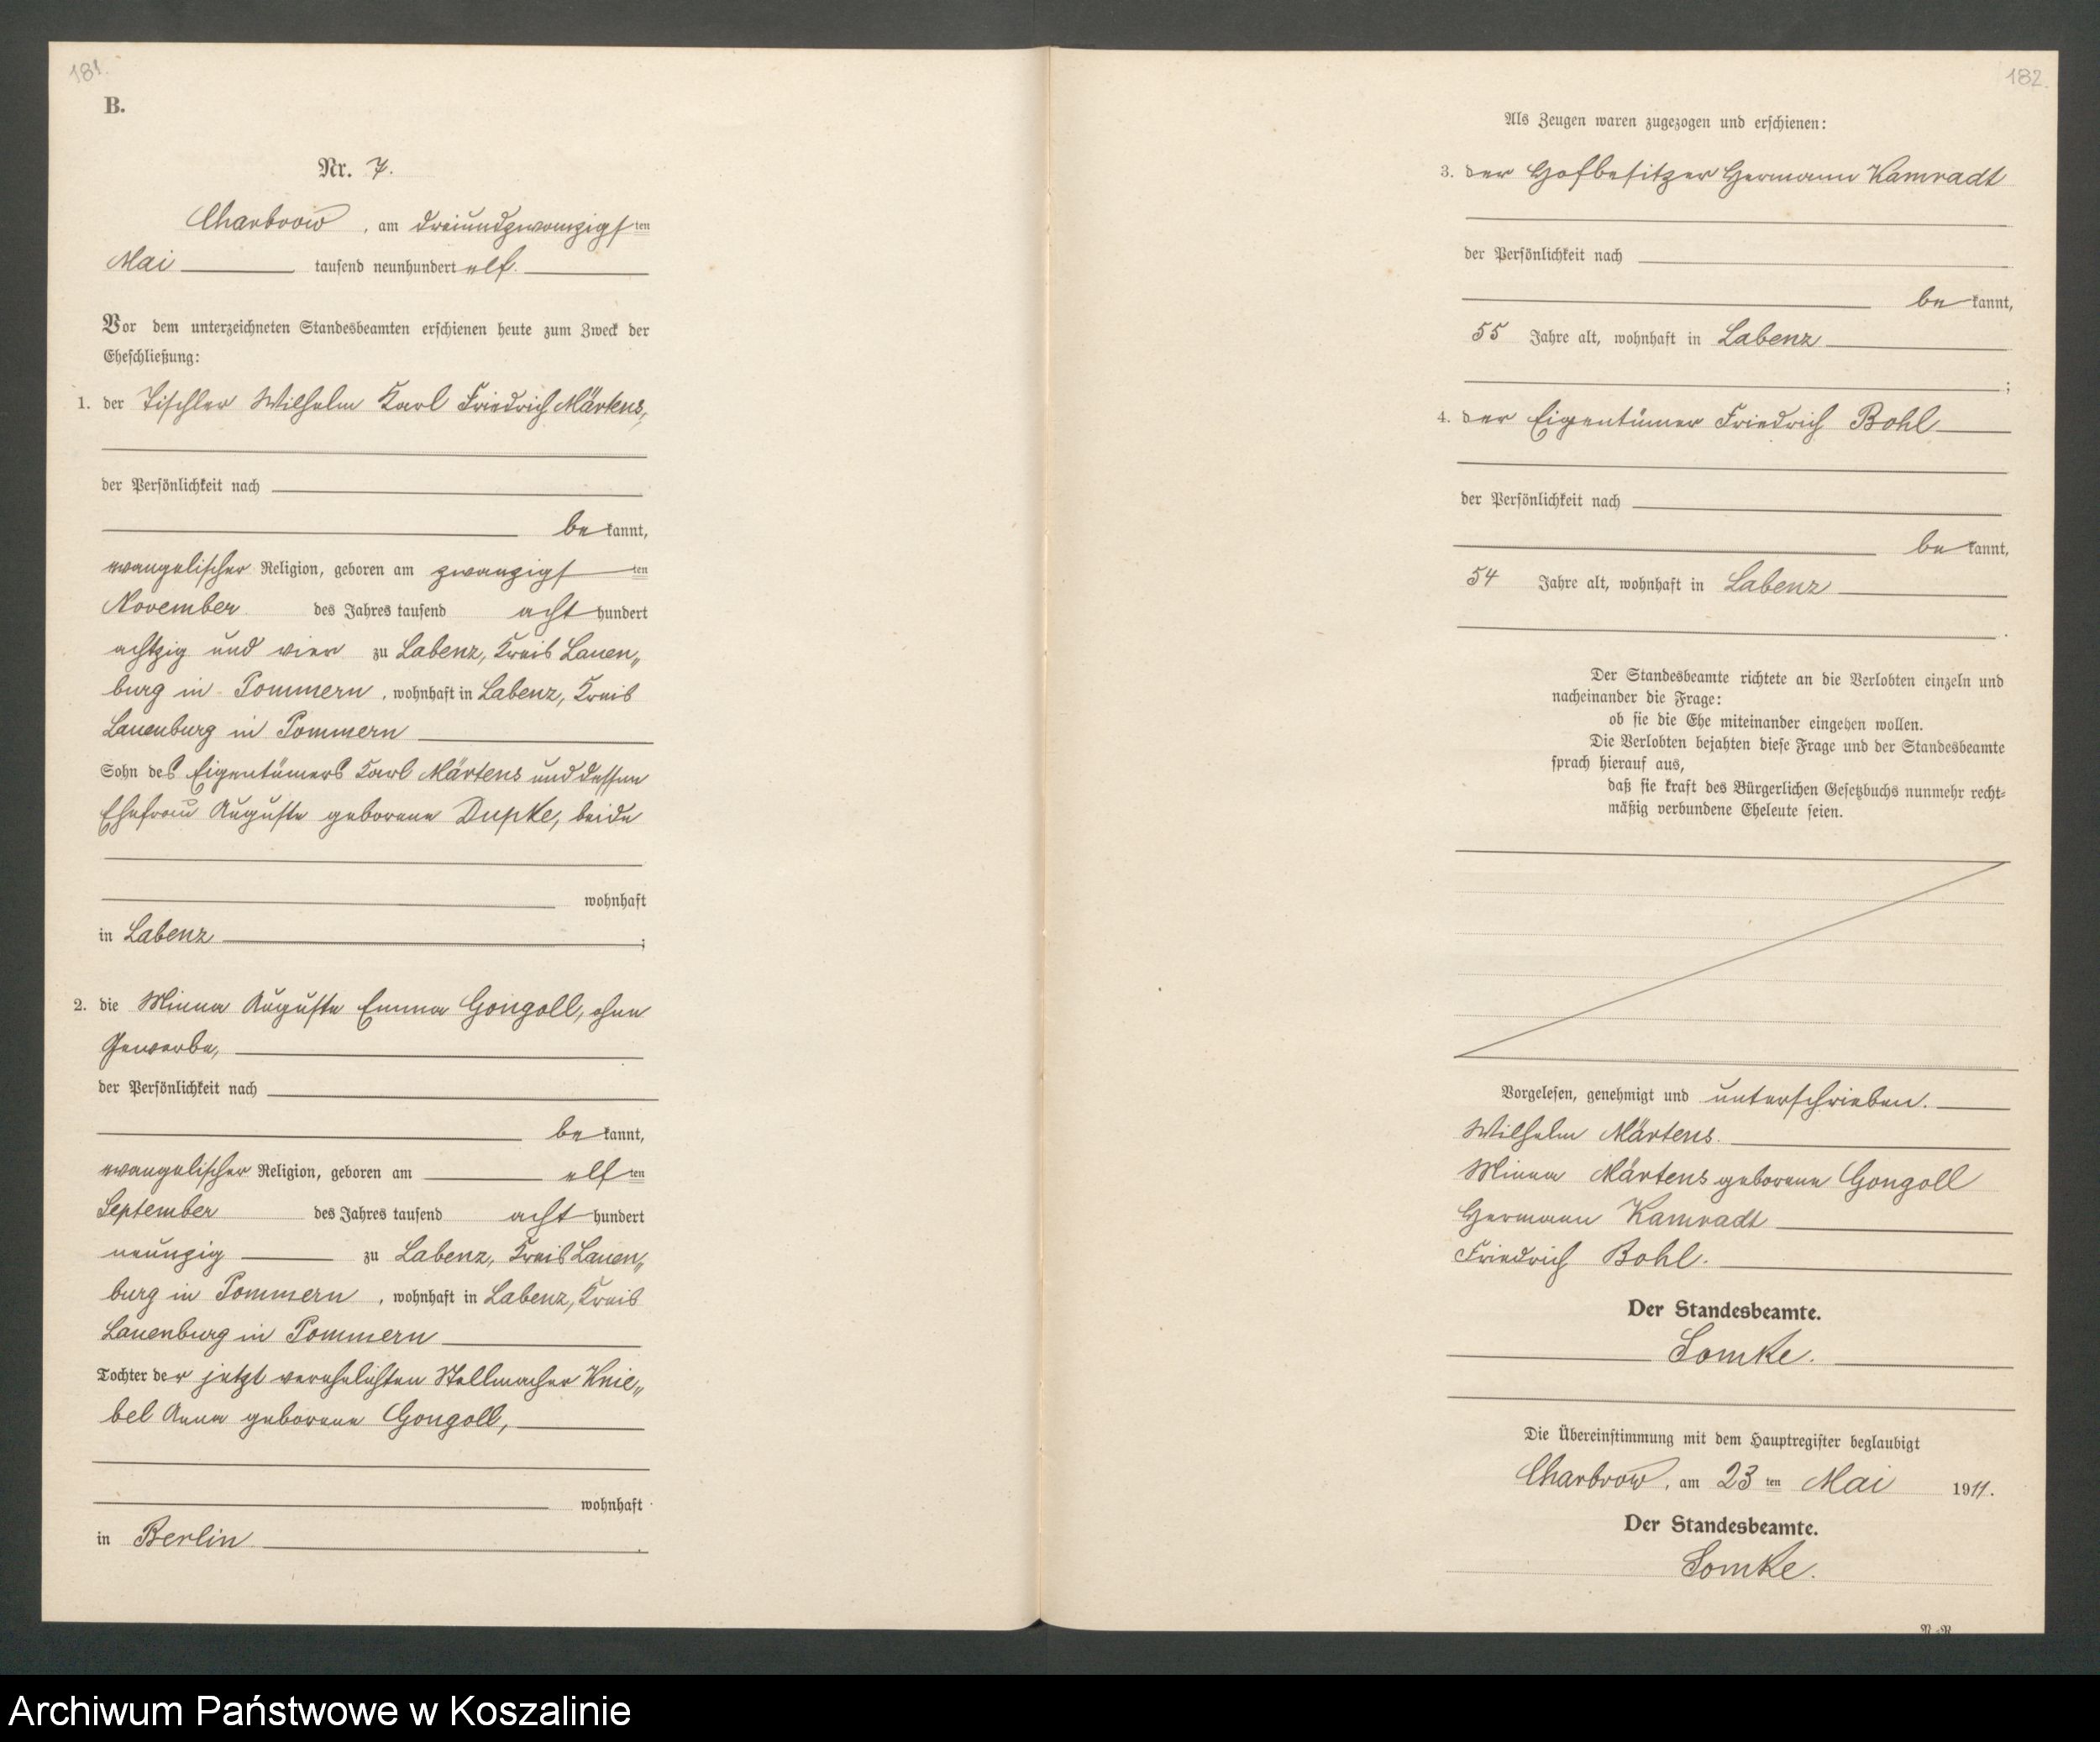 181.
B.
Nr. 7.
Charbrow, am dreiundzwanzigsten
Mai tausend neunhundert elf.
Vor dem unterzeichneten Standesbeamten erschienen heute zum Zweck der
Eheschließung:
1. der Tischler Wilhelm Karl Friedrich Märtens,
der Persönlichkeit nach
bekannt,
evangelischer Religion, geboren am zwanzigsten
November des Jahres tausend achthundert
achtzig und vier zu Labenz, Kreis Lauen„
burg in Pommern, wohnhaft in Labenz, Kreis
Lauenburg in Pommern
Sohn des Eigentümers Karl Märtens und dessen
Ehefrau Auguste geborene Dupke, beide
wohnhaft
in Labenz ;
2. die Minna Auguste Emma Gongoll, ohne
Gewerbe,
der Persönlichkeit nach
bekannt,
evangelischer Religion, geboren am elften
September des Jahres tausend achthundert
neunzig zu Labenz, Kreis Lauen„
burg in Pommern, wohnhaft in Labenz, Kreis
Lauenburg in Pommern
Tochter der jetzt verehelichten Stellmacher Knie„
bel Anna geborene Gongoll,
wohnhaft
in Berlin .
182.
Als Zeugen waren zugezogen und erschienen:
3. der Hofbesitzer Hermann Kamradt
der Persönlichkeit nach
bekannt,
55 Jahre alt, wohnhaft in Labenz
;
4. der Eigentümer Friedrich Bohl
der Persönlichkeit nach
bekannt,
54 Jahre alt, wohnhaft in Labenz
.
Der Standesbeamte richtete an die Verlobten einzeln und
nacheinander die Frage:
ob sie die Ehe miteinander eingehen wollen.
Die Verlobten bejahten diese Frage und der Standesbeamte
sprach hierauf aus,
daß sie kraft des Bürgerlichen Gesetzbuchs nunmehr recht=
mäßig verbundene Eheleute seien.
Vorgelesen, genehmigt und unterschrieben.
Wilhelm Märtens.
Minna Märtens geborene Gongoll
Hermann Kamradt
Friedrich Bohl.
Der Standesbeamte.
Lomke.
Die Übereinstimmung mit dem Hauptregister beglaubigt
Charbrow, am 23ten Mai 1911.
Der Standesbeamte.
Lomke.
Archiwum Państwowe w Koszalinie